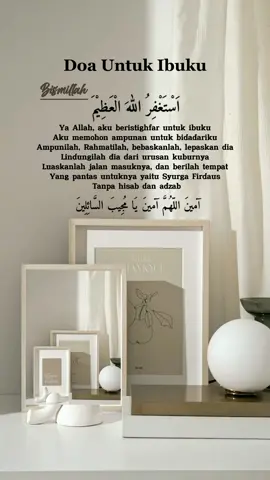 Doa Untuk Ibuku
Bismillah
اَسْتَغْفِرُ اللهَ الْعَظِيْمَ
Ya Allah, aku beristighfar untuk ibuku
Aku memohon ampunan untuk bidadariku
Ampunilah, Rahmatilah, bebaskanlah, lepaskan dia
Lindungilah dia dari urusan kuburnya
Luaskanlah jalan masuknya, dan berilah tempat
Yang pantas untuknya yaitu Syurga Firdaus
Tanpa hisab dan adzab
آمِينَ اللّهُمَّ آمِينَ يَا مُجِيبَ السَّائِلِينَ